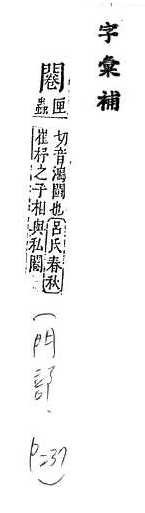 字彙補
闀
匣
蟲
切音鴻闘也呂氏春秋
崔杼之子相與私闀
(門部、p=37)